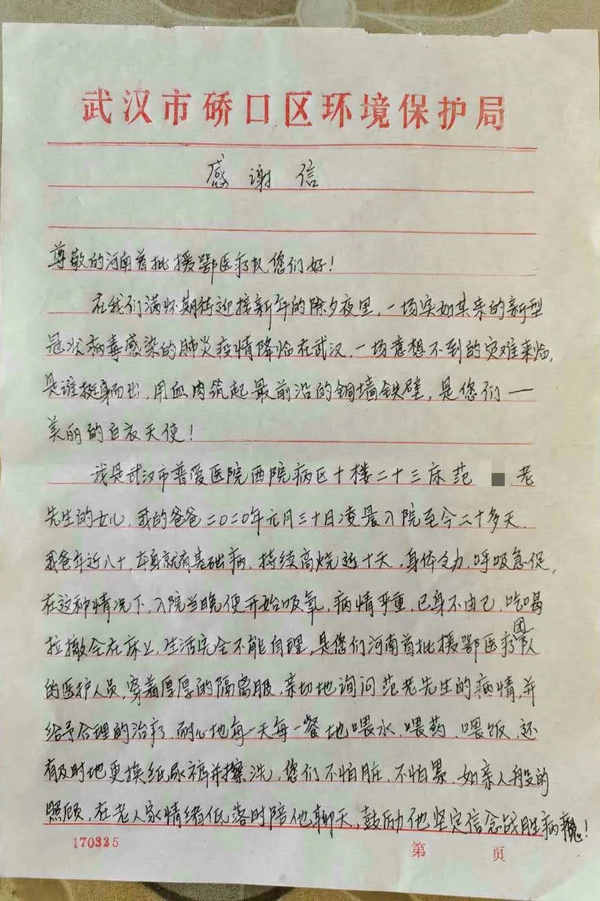 武汉市硚口区环境保护局
感谢信
尊敬的河南首批援鄂医疗队您们好!
在我们满怀期待迎接新年的除夕夜里,一场突如其来的新型
冠状病毒感染的肺炎疫情降临在武汉,一场意想不到的灾难来临,
是谁挺身而出,用血肉筑起最前沿的铜墙铁壁,是您们——
美丽的白衣天使!
我是武汉市普爱医院西院病区十楼二十三床范 老
先生的女儿,我的爸爸二〇二〇年元月三十日凌晨入院至今二十多天.
我爸年近八十,本身就有基础病,持续高烧近十天,身体乏力,呼吸急促,
在这种情况下,入院当晚便开始吸氧,病情严重,已身不由己,吃喝
拉撒全在床上,生活完全不能自理,是您们河南首批援鄂医疗团队
的医护人员,穿着厚厚的隔离服,亲切地询问范老先生的病情,并
给予合理的治疗,耐心地每一天每一餐地喂水、喂药、喂饭,还
有及时地更换纸尿裤并擦洗,您们不怕脏,不怕累,如亲人般的
照顾,在老人家情绪低落时陪他聊天,鼓励他坚定信念战胜病魔!
170335
第 页